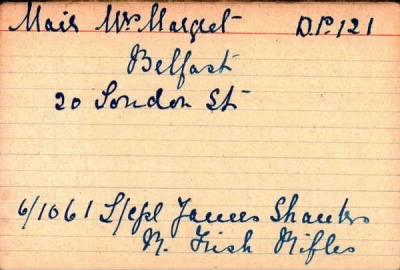 Mair Mrs Margret D.P. 121
Belfast
20 London St
6/1061 L/cpl James Shanks
R. Irish Rifles